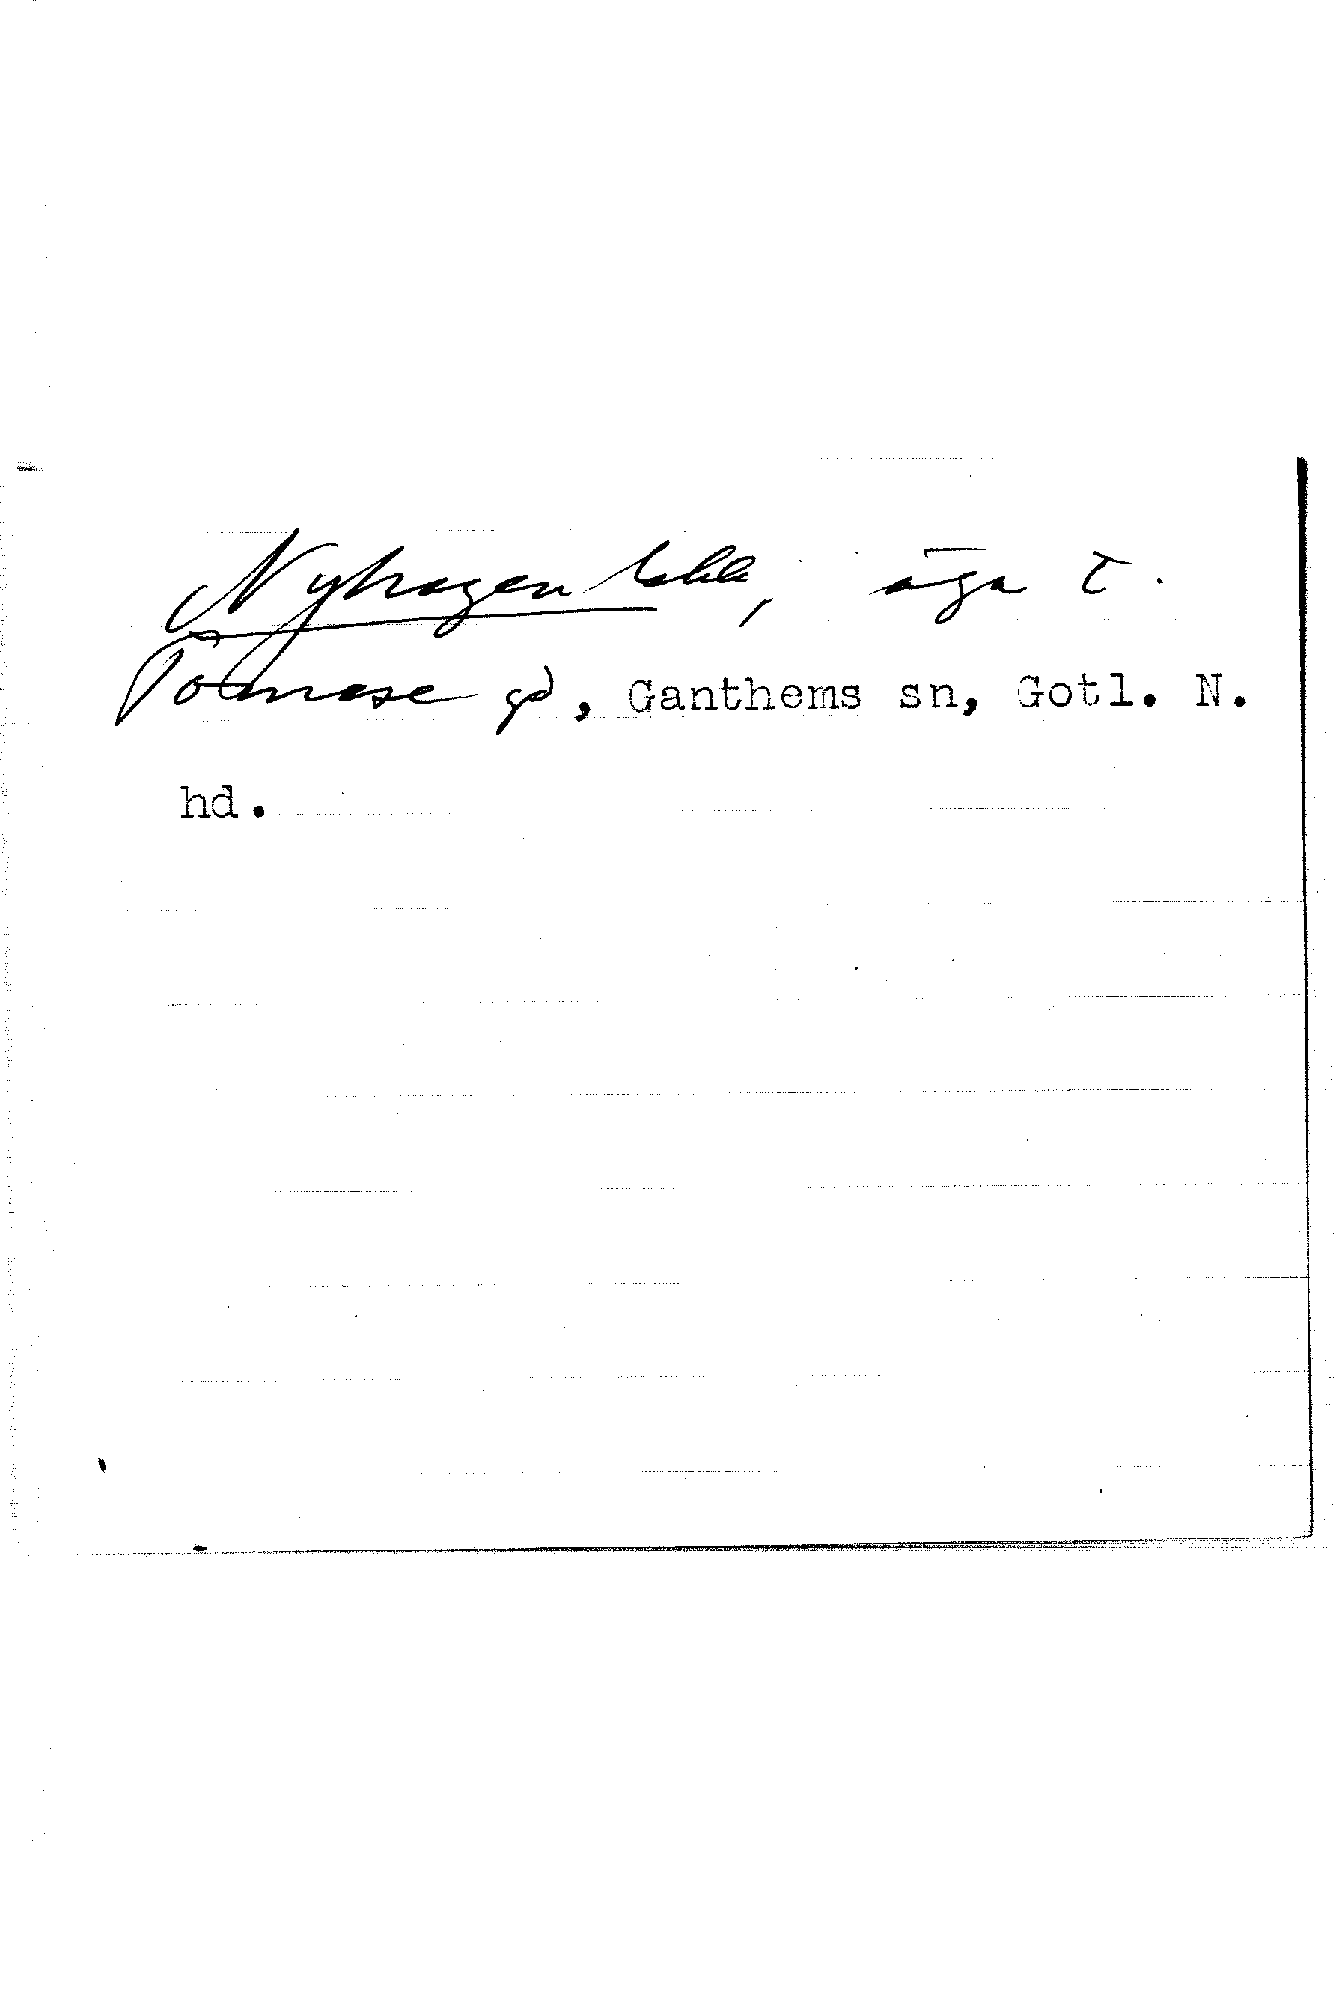 Nyhagen lokk, äga t.
Tomase gd, Ganthems sn, Gotl. N.
hd.